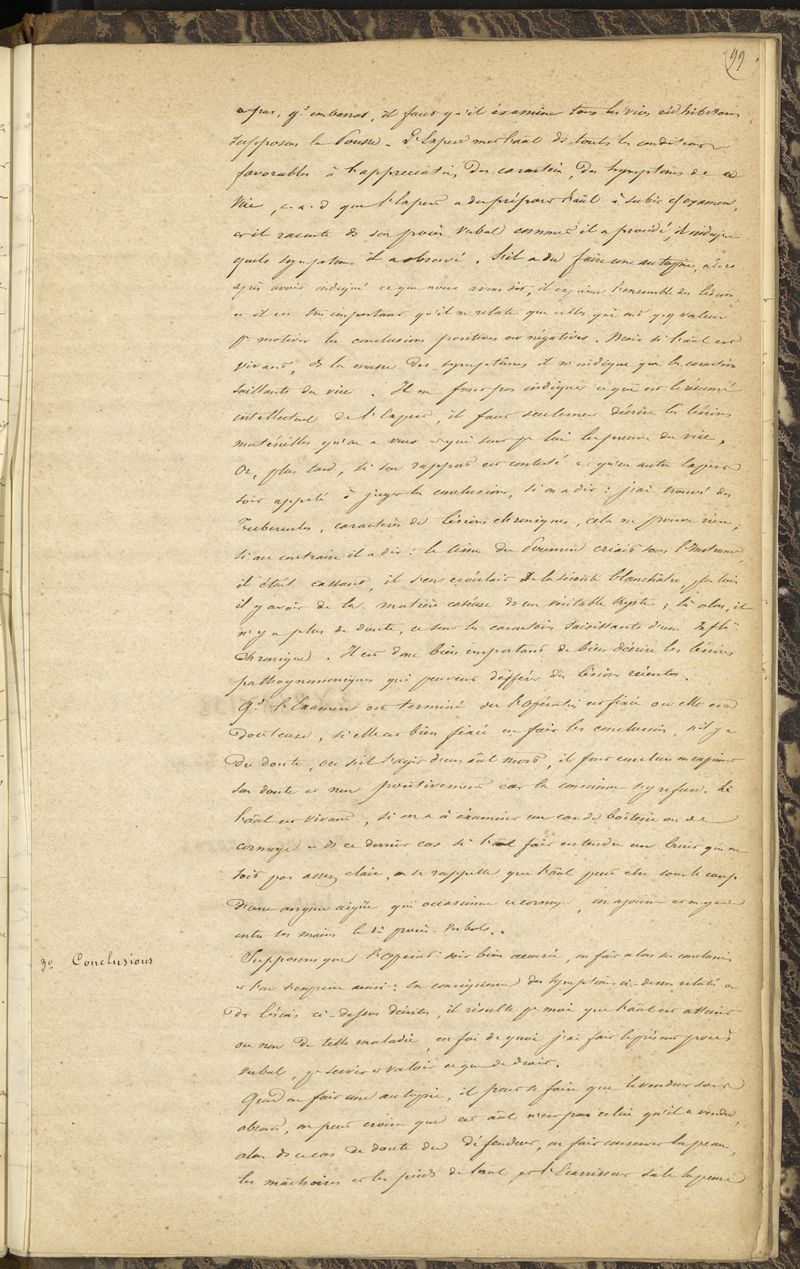 99
a pas, qq. embarras, il faut qu'il examine tous les vices rédhibitoires
supposons la Pousse. L'Expert met l'aâl ds toutes les conditions
favorables à l'appréciation des caractères, des symptômes de ce
vice, c. a. d que l'expert a du préparer l'aâl à subir l'examen,
et il raconte ds son procès verbal comment il a procédé, et indique
quels symptômes il a observé. S'il a du faire une autopsie, alors
après avoir indiqué ce que nous avons dit, il exprime l'ensemble des lésions,
et il est très important qu'il ne relate que celles qui ont qq valeur
pr motiver les conclusions positives ou négatives. Mais si l'aâl est
vivant, ds la masse des symptômes il n'indique que les caractères
saillants du vice. Il ne faut pas indiquer ce qui est le résumé
intellectuel de l'Expert, il faut seulement décrire les lésions
matérielles qu'on a vues et qui sont pr lui la preuve du vice.
Or, plus tard, si son rapport est contesté et qu'un autre expert
soit appelé à juger les conclusions, si on a dit : j'ai trouvé des
Tubercules, caractères de lésions chroniques, cela ne prouve rien,
si au contraire il a dit : le tissu du Poumon criait sous l'instrument,
il était cassant, il s'en écoulait de la sérosité blanchâtre, plus loin
il y avait de la matière caséuse ds un véritable kyste ; là alors, il
n'y a plus de doute, ce sont les caractères saisissants d'une
chronique. Il est donc bien important de bien décrire les lésions
pathognomoniques qui peuvent différer des lésions récentes.
Qd l'Examen est terminé ou l'opération est fixée ou elle est
douteuse, si elle est bien fixée on fait les conclusions, s'il y a
du doute, ou s'il s'agit d'un aâl mort, il faut conclure en exprimant
son doute et non positivement car la conscience s'y refuse. Si
l'aâl est vivant, si on a à examiner un cas de boiterie ou de
cornage et ds ce dernier cas si l'aâl fait entendre un bruit qui ne
soit pas assez clair, on se rappelle que l'aâl peut être sous le coup
d'une angine aigüe qui occasionne ce cornage, on ajourne et on garde
entre ses mains le procès-verbal.
3º Conclusions
Supposons que l'expert soit bien assuré, on fait alors ses conclusions
et l'on s'exprime ainsi : en conséquence des symptômes ci-dessus relatés ou
des lésions ci-dessus décrites, il résulte pr moi que l'aâl est atteint
ou non de telle maladie, en foi de quoi j'ai fait le présent procès
verbal, pr servir et valoir ce que de droit.
Quand on fait une autopsie, il peut se faire que le vendeur soit
absent, on peut croire que cet aâl n'est pas celui qu'il a vendu,
alors ds ce cas de doute du défendeur, on fait conserver la peau,
les mâchoires et les pieds de l'aâl, et l'Equarrisseur sale la peau